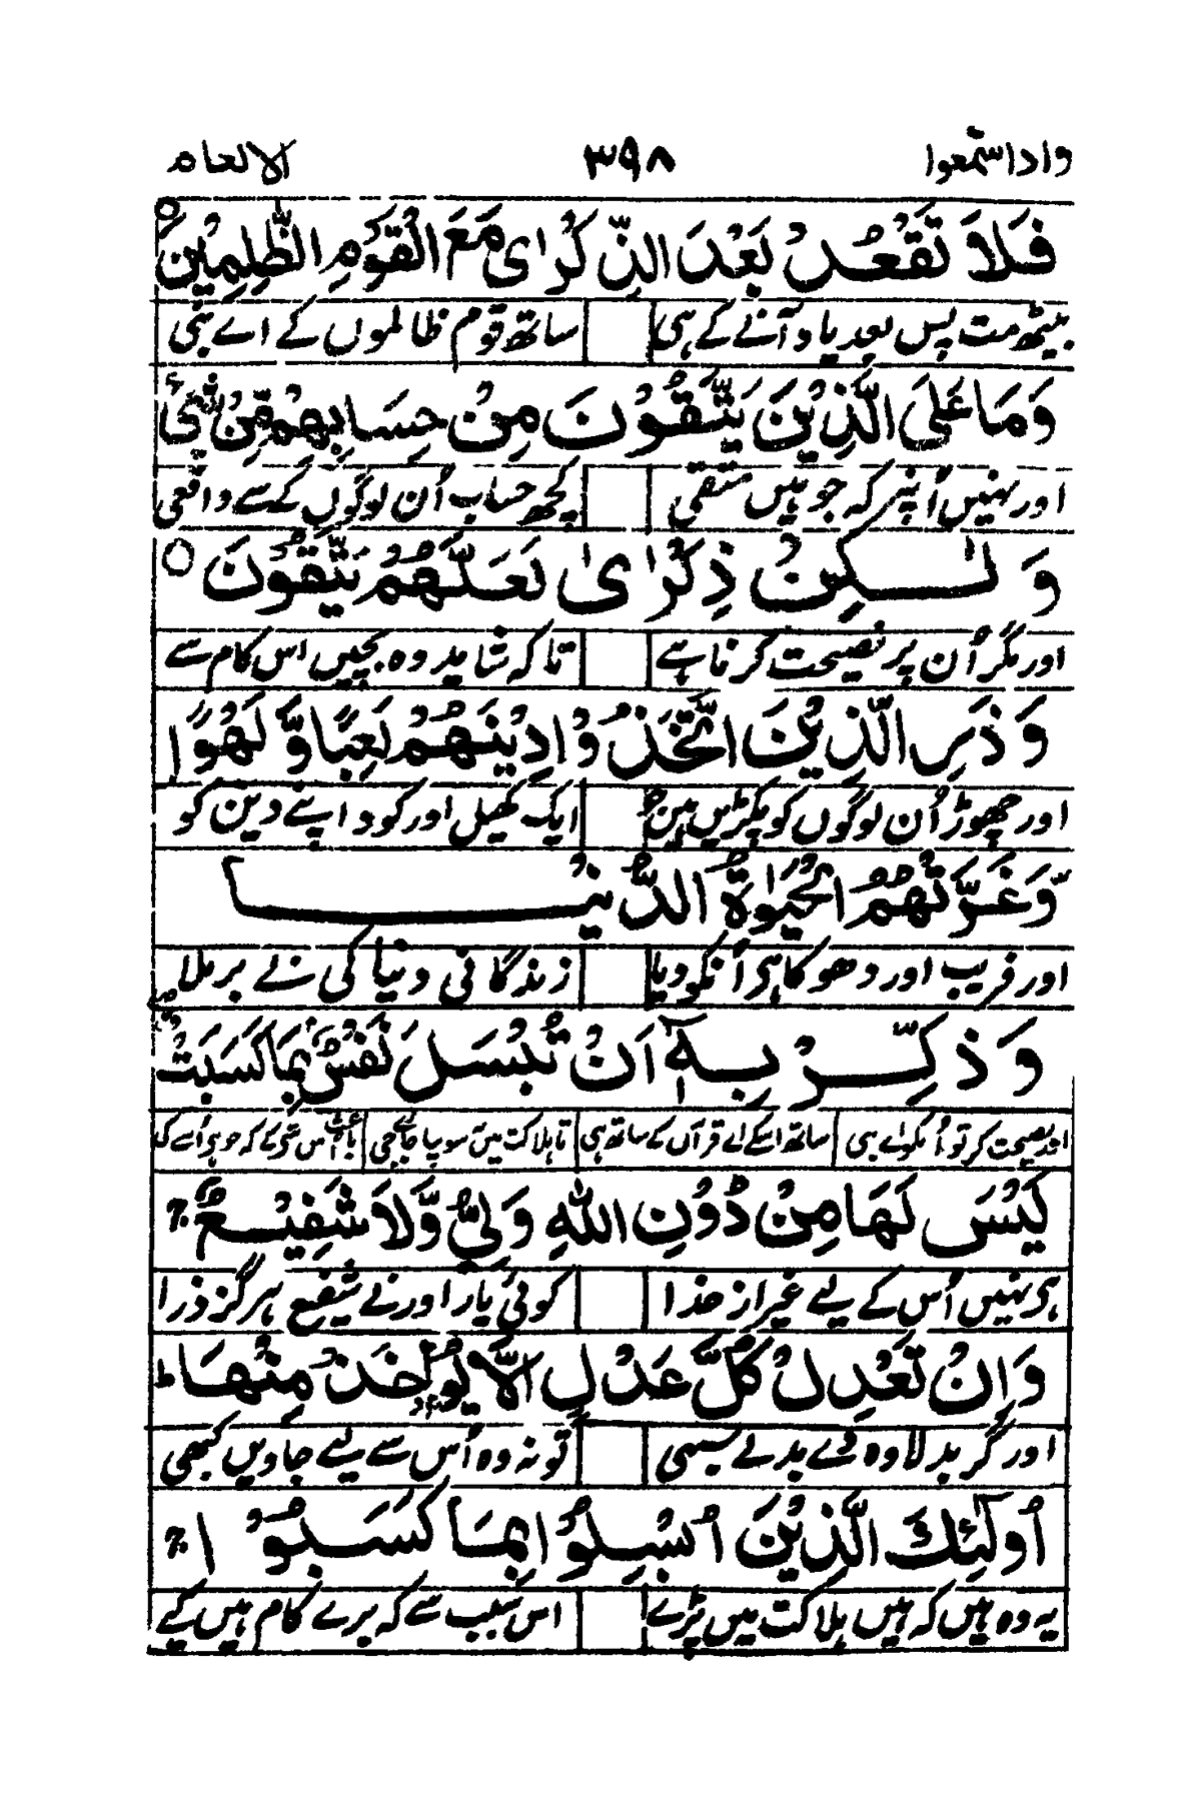 واذاسمعوا ۳۹۸ الانعام
فَلَا تَقْعُدْ بَعْدَ الذِّكْرٰى مَعَ الْقَوْمِ الظّٰلِمِيْنَ ○
بیٹھ مت پس بعد یاد آنے کے ہی ساتھ قوم ظالموں کے اے نبی
وَمَا عَلَى الَّذِيْنَ يَتَّقُوْنَ مِنْ حِسَابِهِمْ مِّنْ شَىْءٍ
اور نہیں اُنپر کہ جو ہیں متقی کچھ حساب اُن لوگوں کے سے واقعی
وَ لٰـكِنْ ذِكْرٰى لَعَلَّهُمْ يَتَّقُوْنَ ○
اور مگر اُن پر نصیحت کرنا ہے تاکہ شاید وہ بچیں اس کام سے
وَ ذَرِ الَّذِيْنَ اتَّخَذُوْا دِيْنَهُمْ لَعِبًا وَّ لَهْوًا
اور چھوڑ اُن لوگوں کو پکڑیں ہیں جو ایک کھیل اور کود اپنے دین کو
وَّغَرَّتْهُمُ الْحَيٰوةُ الدُّنْيَا
اور فریب اور دھوکا ہی اُنکو دیا زندگانی دنیا کی نے برملا
وَ ذَكِّرْ بِهٖٓ اَنْ تُبْسَلَ نَفْسٌۢ بِمَا كَسَبَتْ
نصیحت کر تو اُنکو اے نبی ساتھ اسکے اے قرآں کے ساتھ ہی تا ہلاکت میں سونپا جائے جی
لَيْسَ لَهَا مِنْ دُوْنِ اللّٰهِ وَلِىٌّ وَّلَا شَفِيْعٌ ۚ
ہی نہیں اُس کے لیے غیر از خدا کوئی یار اور نے شفیع ہرگز ذرا
وَ اِنْ تَعْدِلْ كُلَّ عَدْلٍ لَّا يُؤْخَذْ مِنْهَا ؕ
اور گر بدلا وہ دے بدلے سبھی تو نہ وہ اُس سے لیے جاویں کبھی
اُولٰٓئِكَ الَّذِيْنَ اُبْسِلُوْا بِمَا كَسَبُوْا ۚ
یہ وہ ہیں کہ ہیں ہلاکت میں پڑے اس سبب سے کہ برے کام ہیں کیے